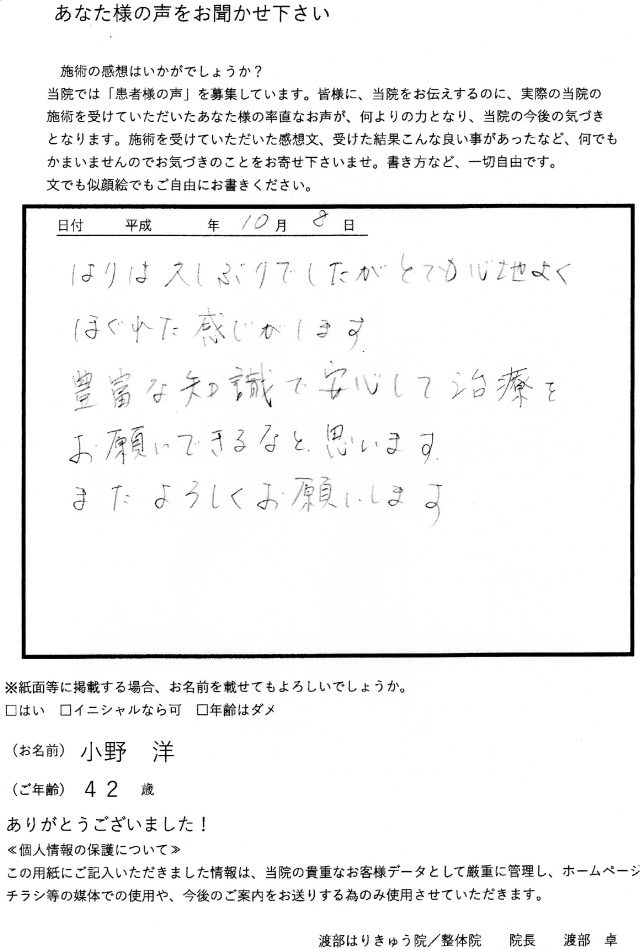 あなた様の声をお聞かせ下さい
施術の感想はいかがでしょうか?
当院では「患者様の声」を募集しています。皆様に、当院をお伝えするのに、実際の当院の
施術を受けていただいたあなた様の率直なお声が、何よりの力となり、当院の今後の気づき
となります。施術を受けていただいた感想文、受けた結果こんな良い事があったなど、何でも
かまいませんのでお気づきのことをお寄せ下さいませ。書き方など、一切自由です。
文でも似顔絵でもご自由にお書きください。
日付 平成 年 10月 8日
はりは久しぶりでしたがとても心地よく
ほぐれた感じがします
豊富な知識で安心して治療を
お願いできるなと思います。
またよろしくお願いします
※紙面等に掲載する場合、お名前を載せてもよろしいでしょうか。
□はい □イニシャルなら可 □年齢はダメ
(お名前) 小野 洋
(ご年齢) 42 歳
ありがとうございました!
≪個人情報の保護について≫
この用紙にご記入いただきました情報は、当院の貴重なお客様データとして厳重に管理し、ホームページ
チラシ等の媒体での使用や、今後のご案内をお送りする為のみ使用させていただきます。
渡部はりきゅう院/整体院 院長 渡部 卓